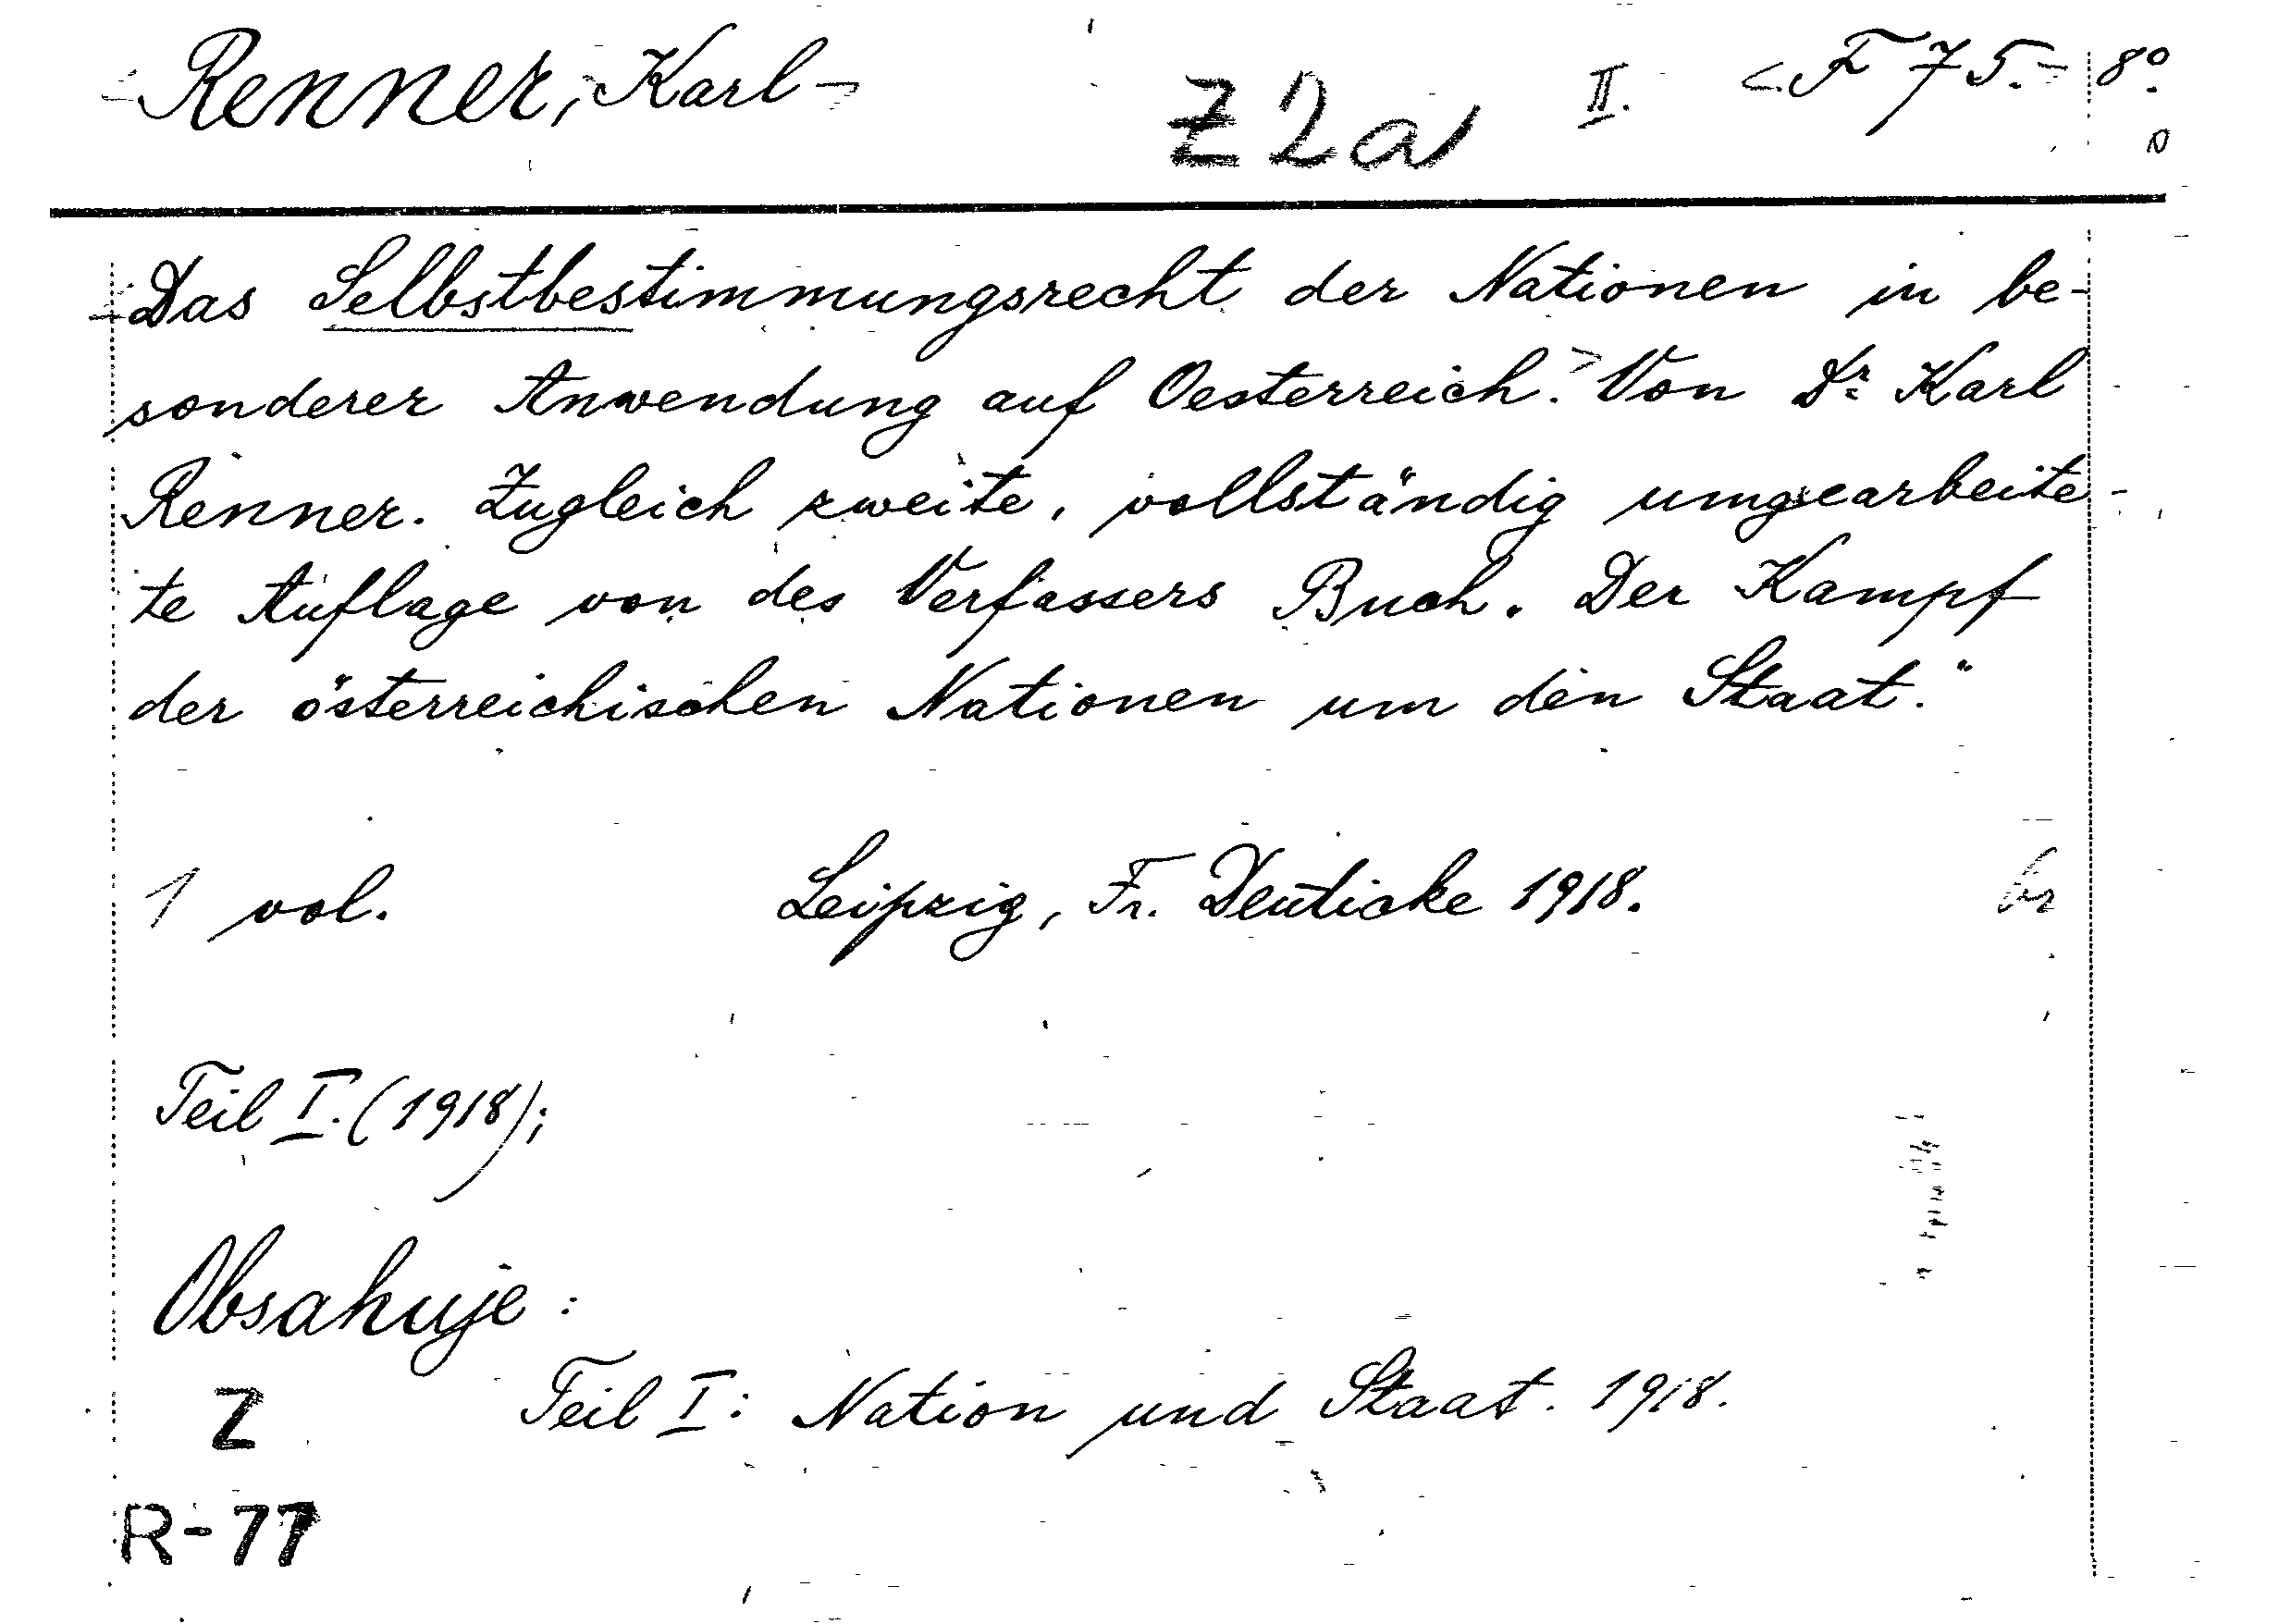 Renner, Karl Z2a II. F 75.- 8°.
Das Selbstbestimmungsrecht der Nationen in be-
sonderer Anwendung auf Oesterreich. Von Dr. Karl
Renner. Zugleich zweite, vollständig umgearbeite-
te Auflage von des Verfassers Buch. Der Kampf
der österreichischen Nationen um den Staat."
1 vol. Leipzig, Fr. Deuticke 1918. br
Teil I. (1918);
Obsahuje:
Z Teil I: Nation und Staat. 1918.
R-77